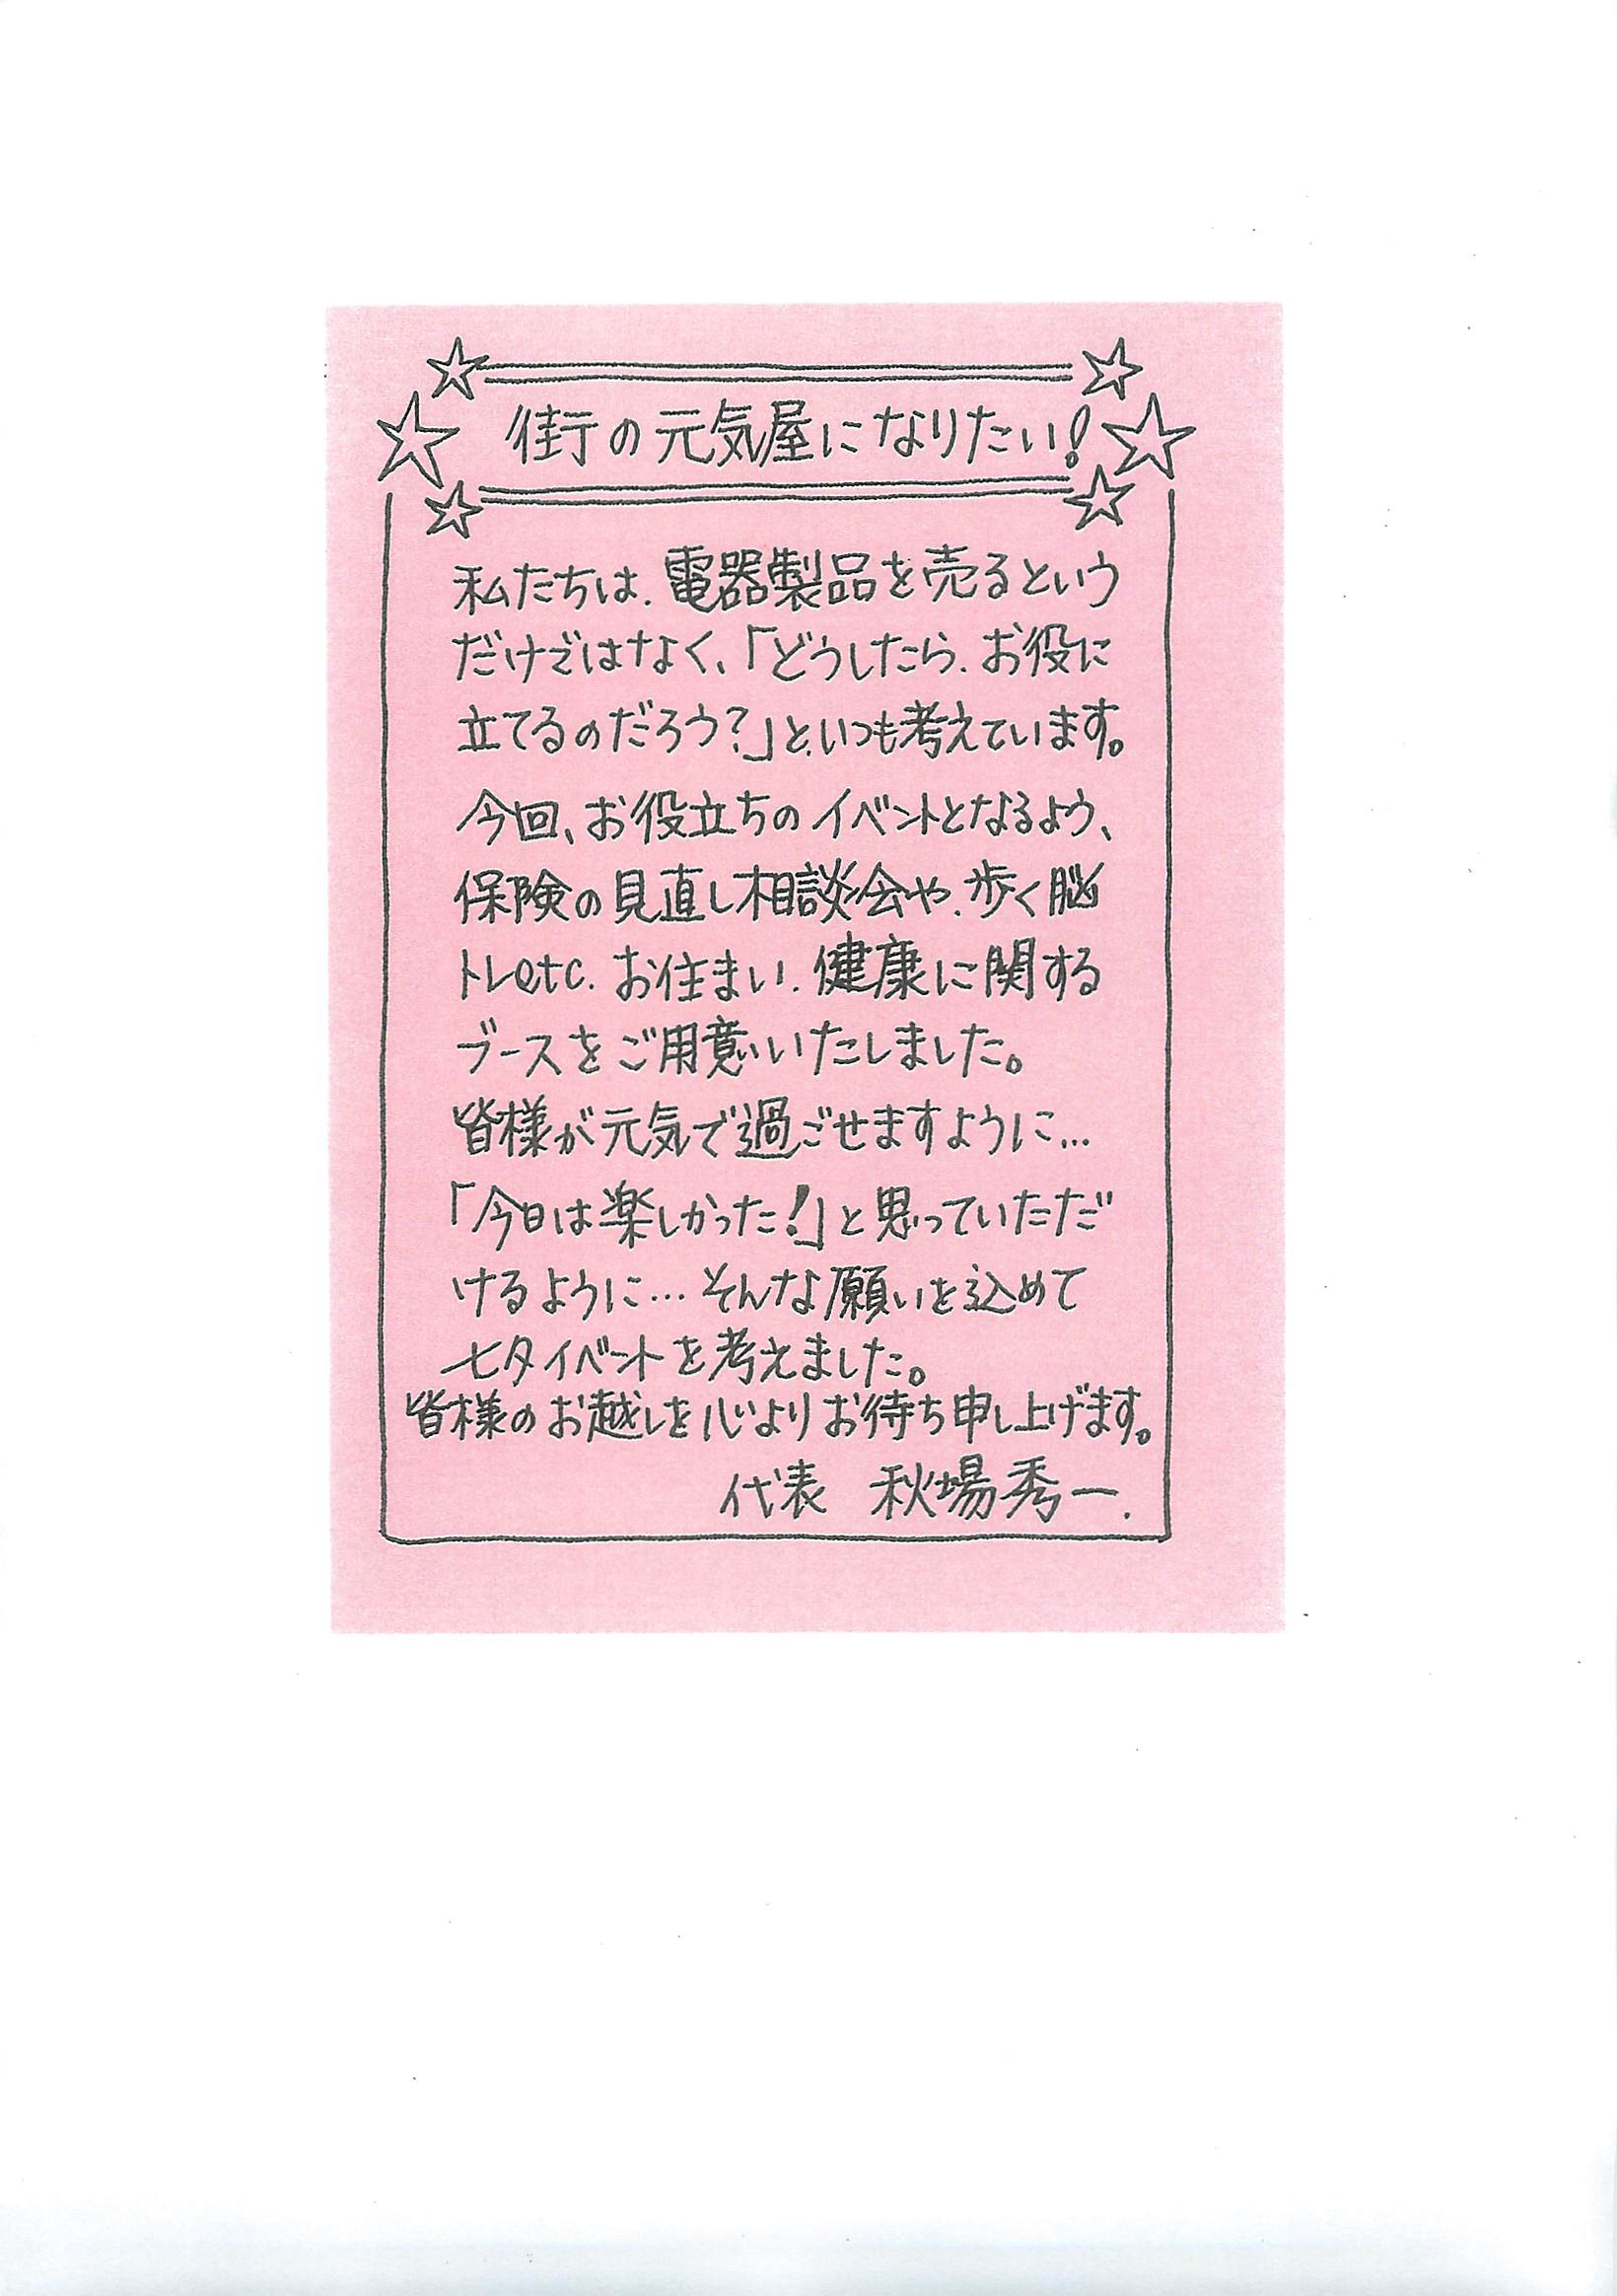 街の元気屋になりたい!
私たちは、電器製品を売るという
だけではなく、「どうしたら、お役に
立てるのだろう?」と、いつも考えています。
今回、お役立ちのイベントとなるよう、
保険の見直し相談会や、歩く脳
トレetc. お住まい、健康に関する
ブースをご用意いたしました。
皆様が元気で過ごせますように…
「今日は楽しかった!」と思っていただ
けるように…そんな願いを込めて
七夕イベントを考えました。
皆様のお越しを心よりお待ち申し上げます。
代表 秋場秀一.